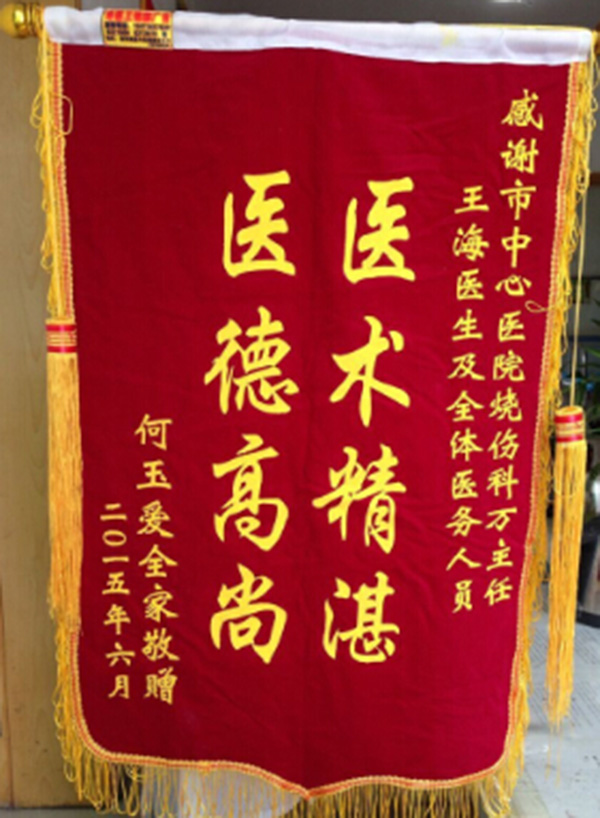 感谢市中心医院烧伤科万主任
王海医生及全体医务人员
医术精湛
医德高尚
何玉爱全家敬赠
二〇一五年六月